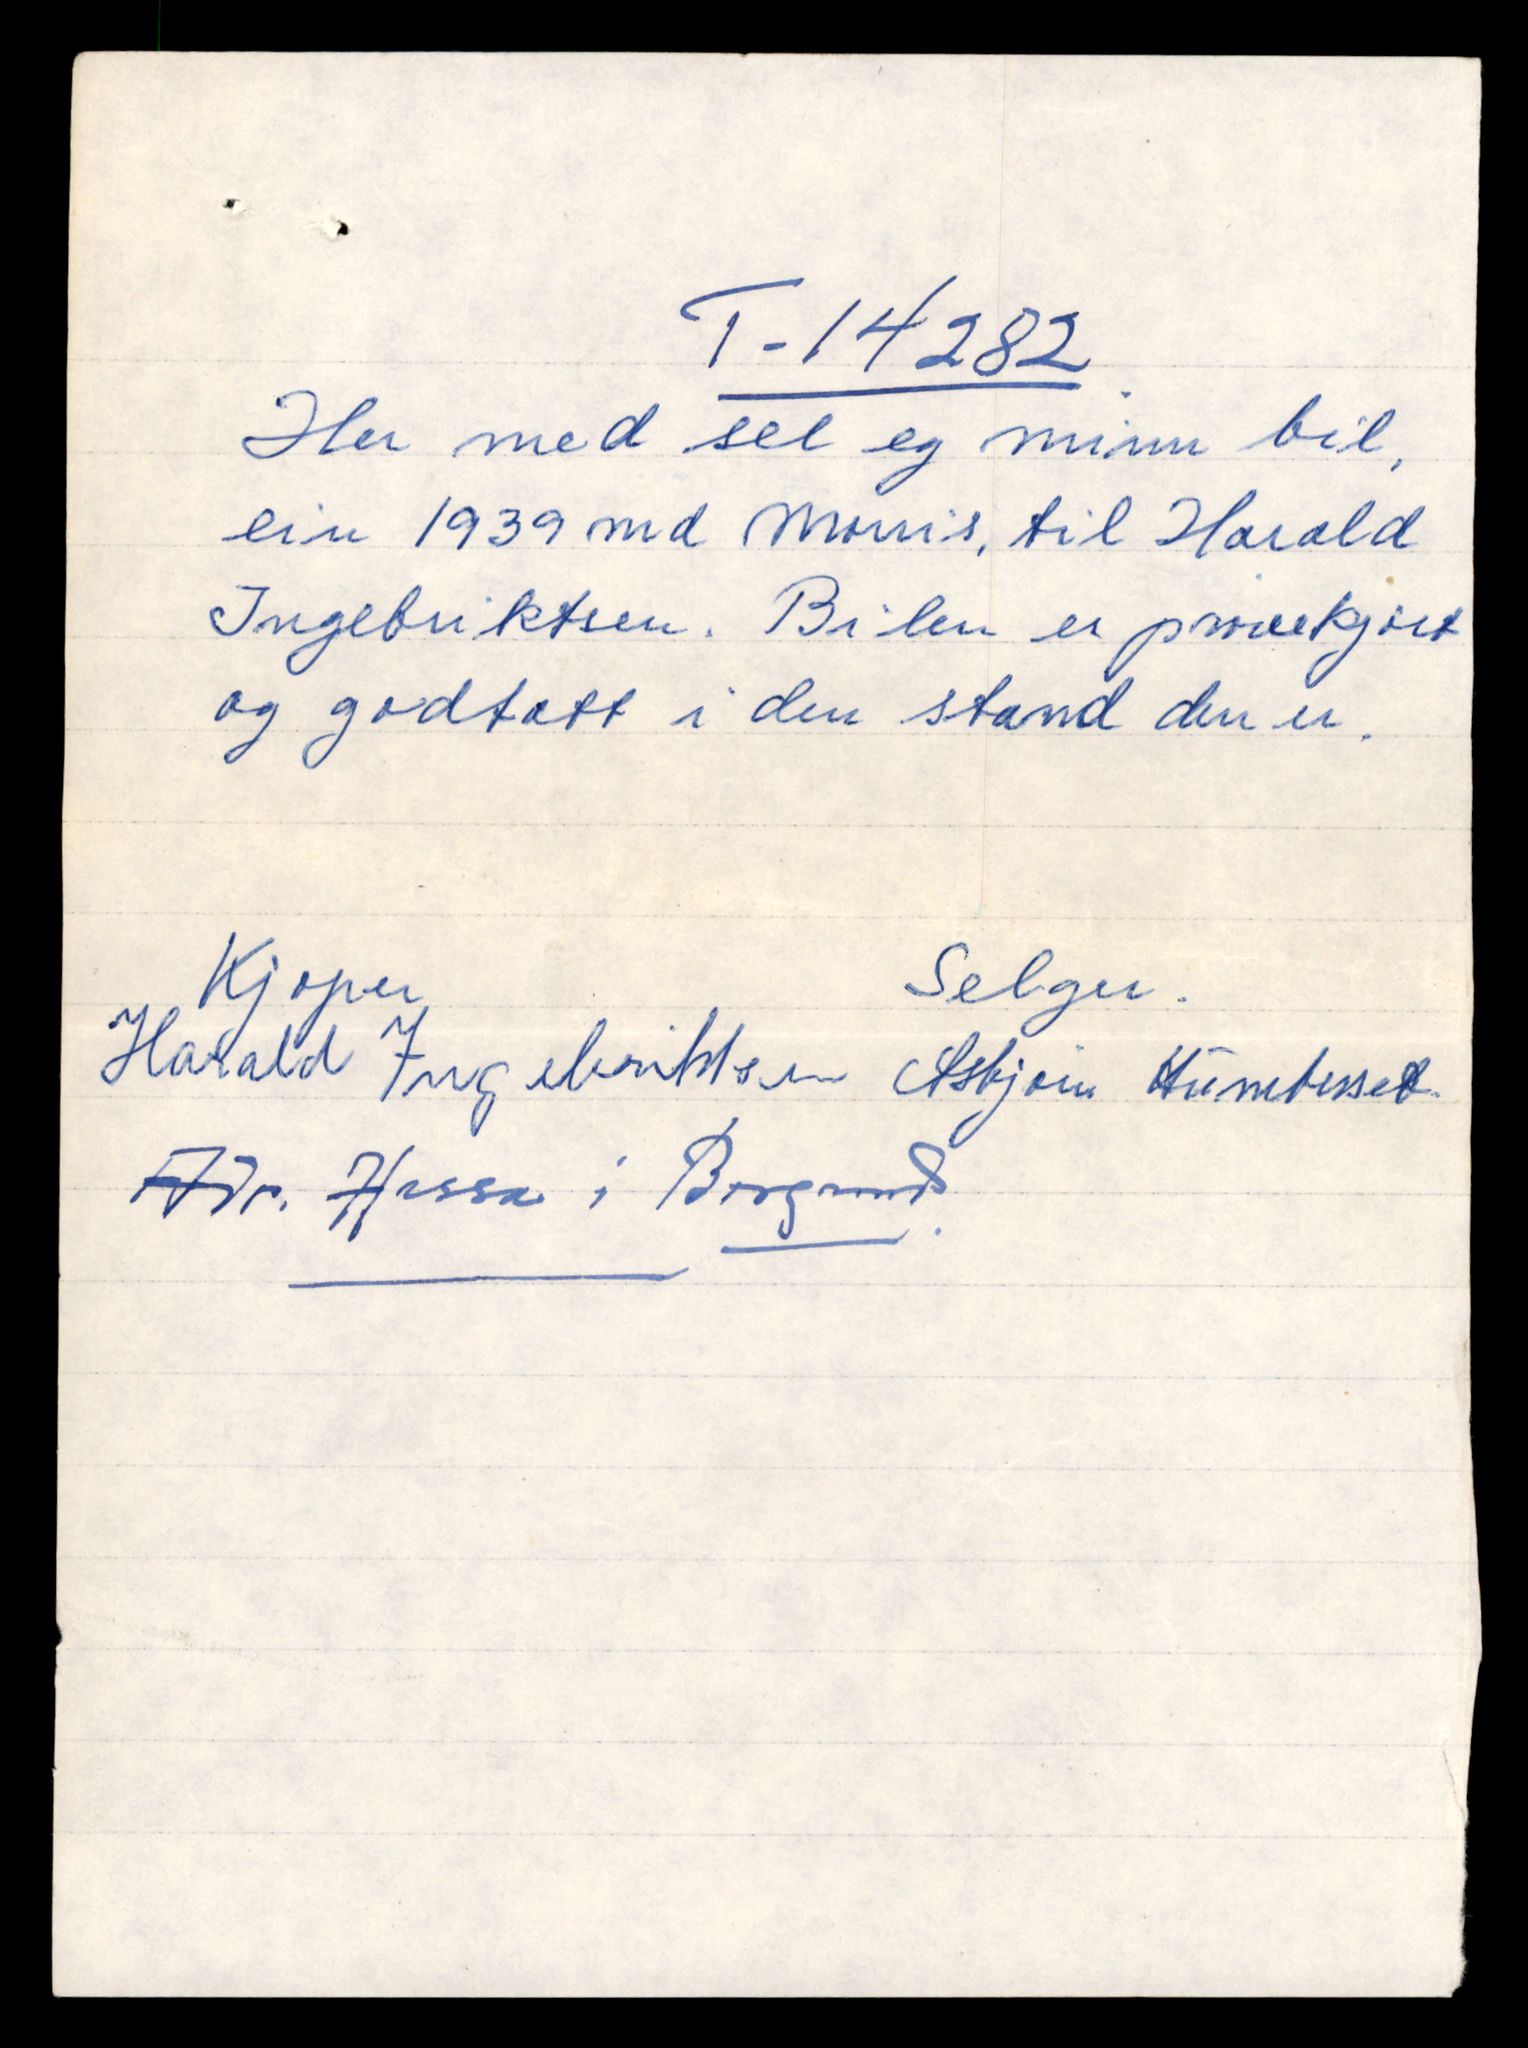 T-14282
Her med sel eg minn bil,
ein 1939 md Morris, til Harald
Ingebriktsen. Bilen er prøvekjørt
og godtatt i den stand den er.
Kjøper
Selger.
Harald Ingebriktsen Asbjørn Humberset.
Adr. Hessa i Borgund.